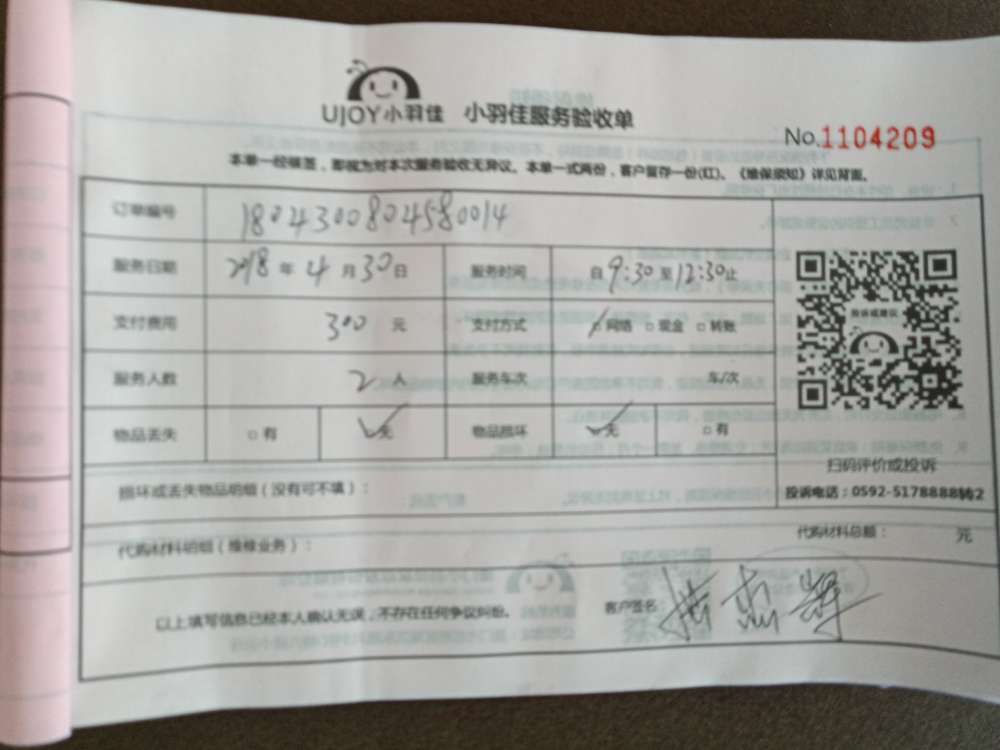 UJOY小羽佳 小羽佳服务验收单
No.1104209
本单一经签签，即视为对本次服务验收无异议。本单一式两份，客户留存一份(红)。《维保须知》详见背面。
订单编号 1804300804580014
服务日期 2018 年 4 月 30 日 服务时间 自 9:30 至 12:30 止
支付费用 300 元 支付方式 □网络 □现金 □转账
投诉或建议
服务人数 2 人 服务车次 车/次
物品丢失 □有 无 物品损坏 无 □有
扫码评价或投诉
损坏或丢失物品明细（没有可不填）：
投诉电话：0592-5178888转2
代购材料明细（维修业务）：
代购材料总额： 元
以上填写信息已经本人确认无误，不存在任何争议纠纷。 客户签名